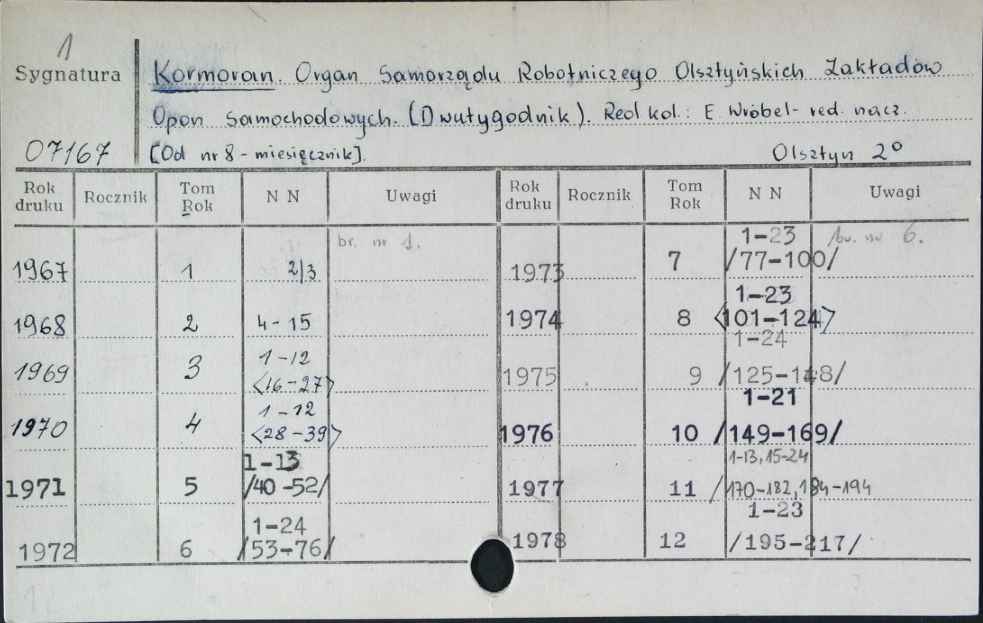 1
Sygnatura
Kormoran. Organ Samorządu Robotniczego Olsztyńskich Zakładów
Opon Samochodowych. (Dwutygodnik). Red kol.: E. Wróbel - red. nacz.
07167 [Od nr 8 - miesięcznik]. Olsztyn 2°
Rok druku Rocznik Tom Rok N N Uwagi Rok druku Rocznik Tom Rok N N Uwagi
1967 1 2/3 br. nr 1.
1968 2 4-15
1969 3 1-12 <16-27>
1970 4 1-12 <28-39>
1971 5 1-13 /40-52/
1972 6 1-24 /53-76/
1973 7 1-23 /77-100/ br. nr 6.
1974 8 1-23 <101-124>
1975 9 1-24 /125-148/
1976 10 1-21 /149-169/
1977 11 1-13, 15-24 /170-182, 184-194
1978 12 1-23 /195-217/